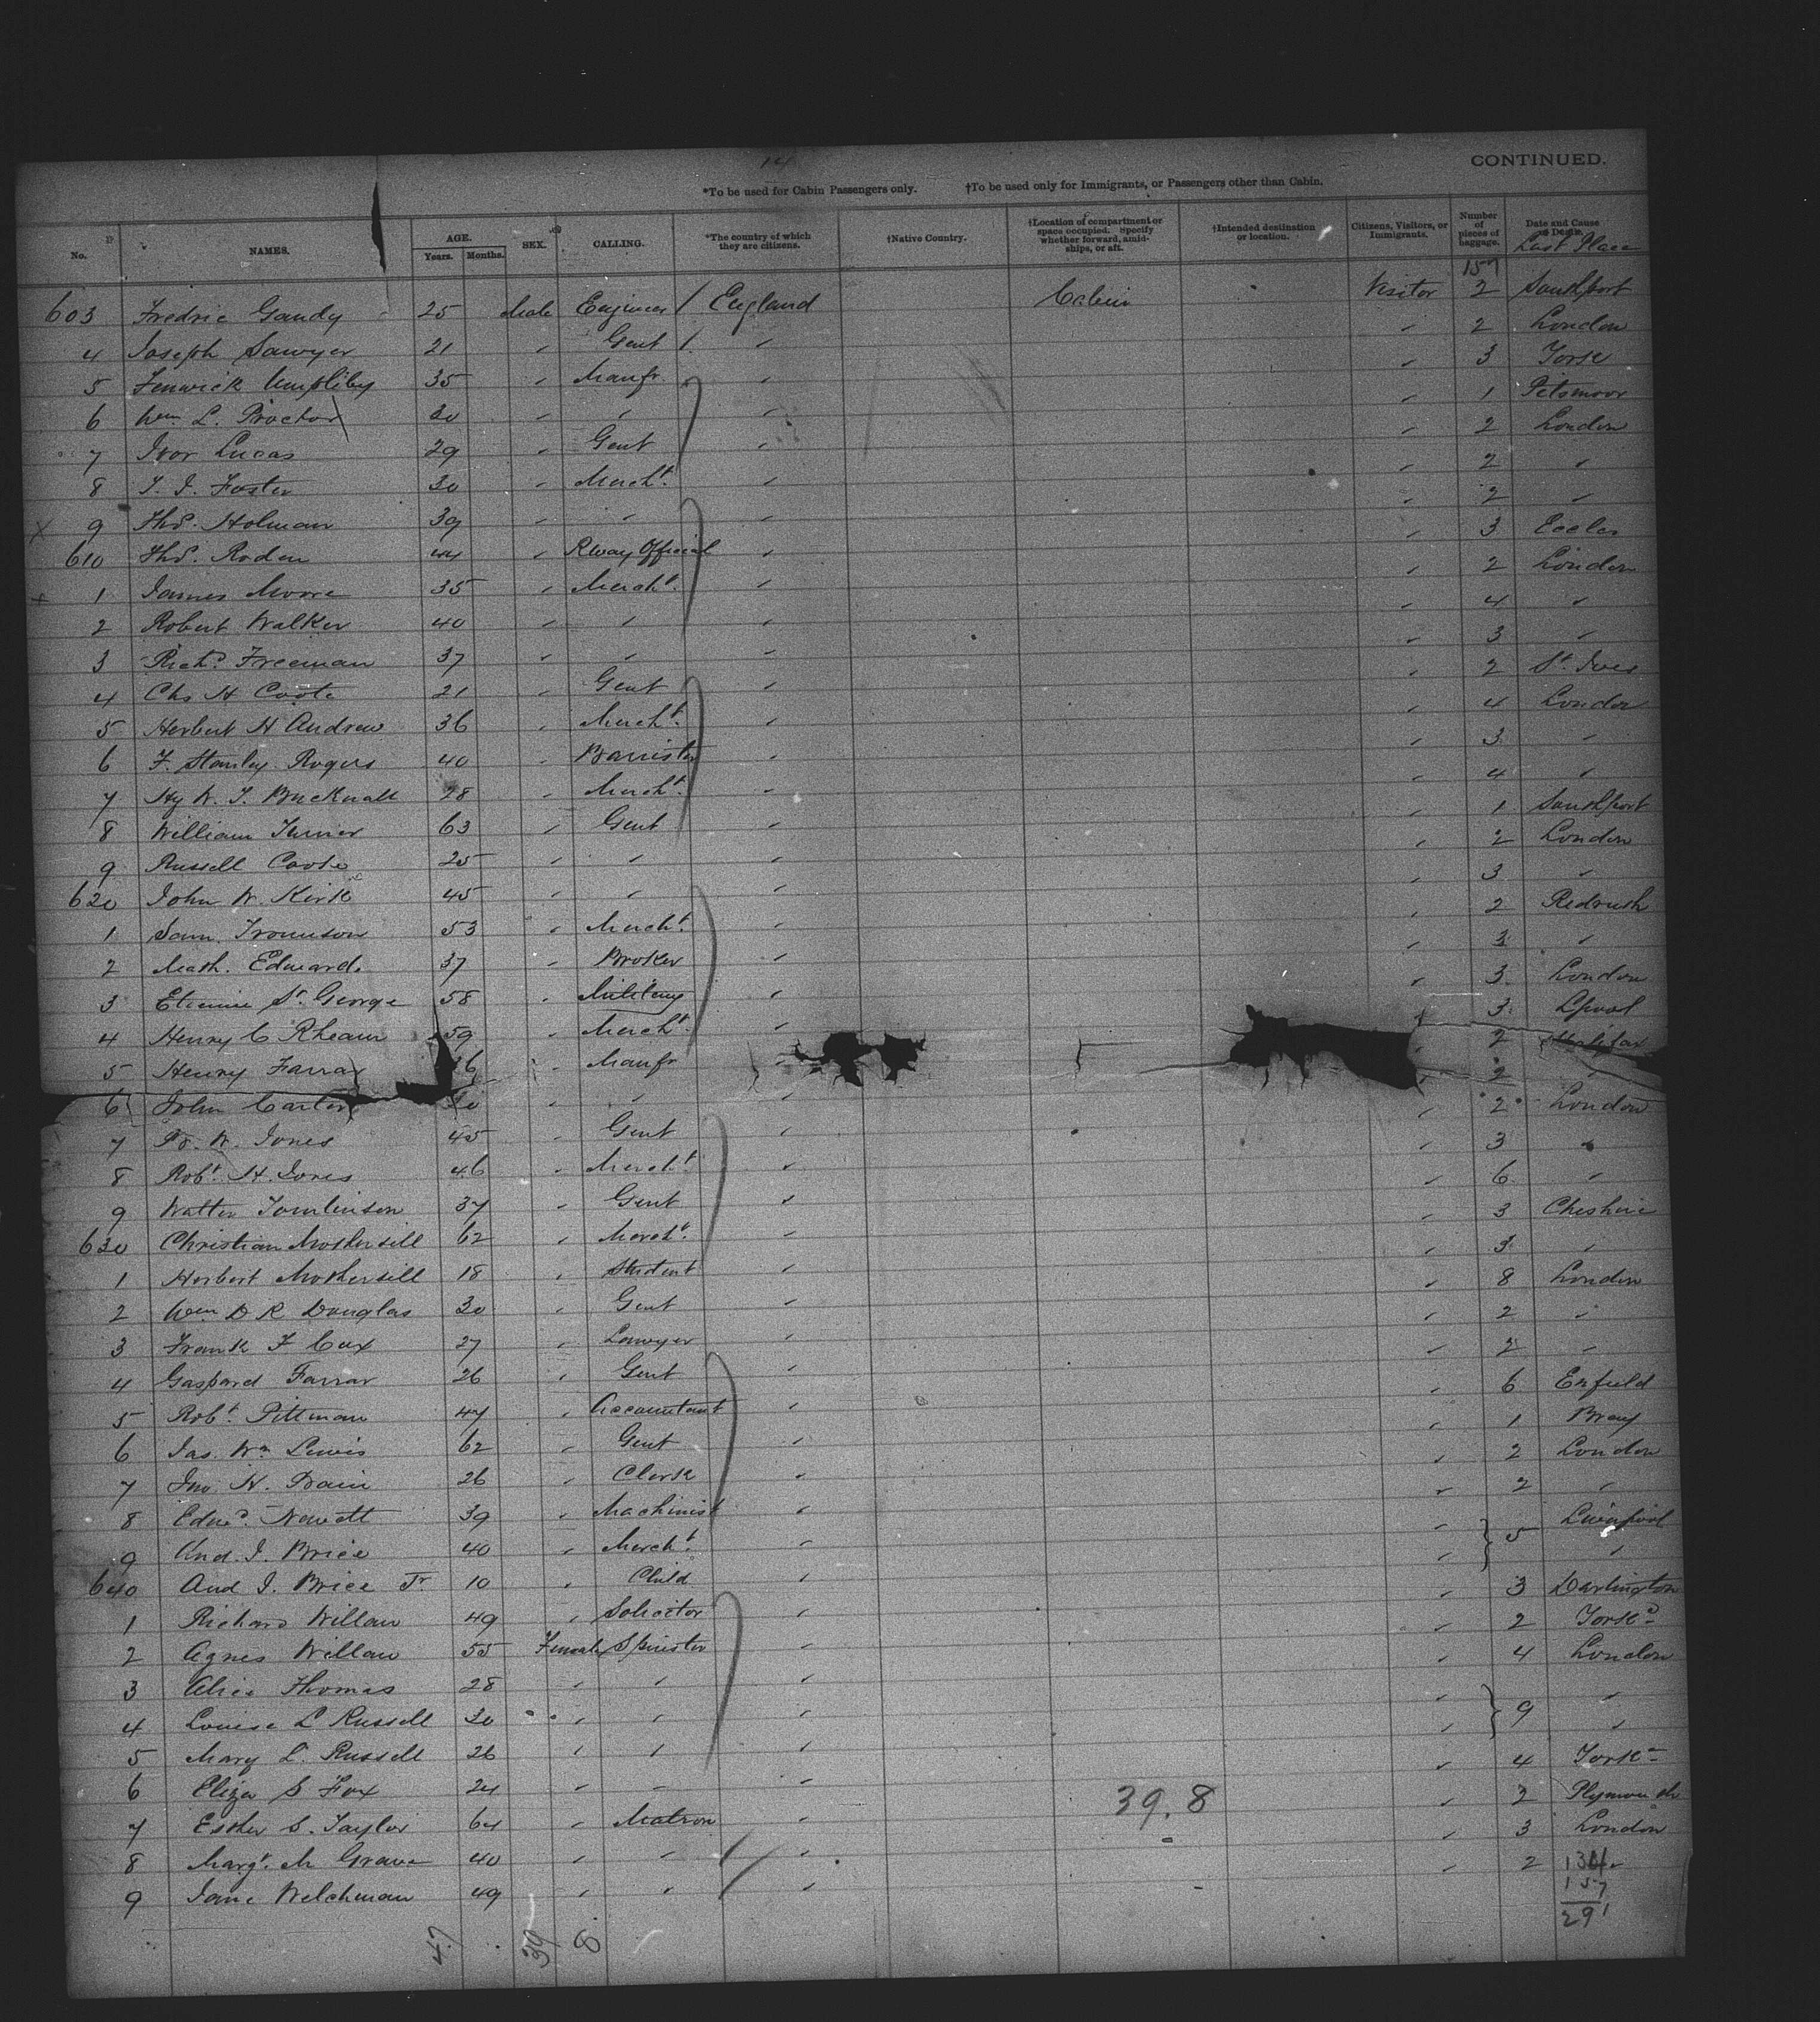 14
CONTINUED.
*To be used for Cabin Passengers only. †To be used only for Immigrants, or Passengers other than Cabin.
No. NAMES. AGE. Years. Months. SEX. CALLING. *The country of which they are citizens. †Native Country. †Location of compartment or space occupied. Specify whether forward, amidships, or aft. †Intended destination or location. Citizens, Visitors, or Immigrants. Number of pieces of baggage. Date and Cause of Death. Last Place
157
603 Fredric Gandy 25 Male Engineer England Cabin Visitor 2 Southport
4 Joseph Sawyer 21 " Gent " " 2 London
5 Fenwick Umpleby 35 " Manfr. " " 3 York
6 Wm L. Proctor 30 " " " " 1 Pitsmoor
7 Ivor Lucas 29 " Gent " " 2 London
8 T. J. Foster 30 " Mercht. " " 2 "
9 Thos. Holman 39 " " " " 2 "
610 Thos. Roden 44 " Rway Official " " 3 Eccles
1 James Moore 35 " Mercht. " " 2 London
2 Robert Walker 40 " " " " 4 "
3 Richd Freeman 37 " " " " 3 "
4 Chs H Coote 21 " Gent " " 2 St Ives
5 Herbert H Andrew 36 " Mercht. " " 4 London
6 F. Stanley Rogers 40 " Barrister " " 3 "
7 Hy W. T. Bucknall 28 " Mercht. " " 4 "
8 William Turner 63 " Gent " " 1 Southport
9 Russell Coote 25 " " " " 2 London
620 John W. Kirk 45 " " " " 3 "
1 Sam. Trounson 53 " Mercht. " " 2 Redruth
2 Math. Edwards 37 " Broker " " 3 "
3 Etienne St. George 58 " Military " " 3 London
4 Henry C Rheam 59 " Mercht. " " 3 Lpool
5 Henry Farrar " Manfr " " 2 Halifax
6 John Carter " " " " 2 "
7 W. Jones 45 " Gent " " 2 London
8 Robt. H. Jones 46 " Mercht " " 3 "
9 Walter Tomlinson 37 " Gent " " 6 "
630 Christian Mothersill 62 " Mercht. " " 3 Cheshire
1 Herbert Mothersill 18 " Student " " 3 "
2 Wm D R Douglas 30 " Gent " " 8 London
3 Frank F Cox 27 " Lawyer " " 2 "
4 Gaspard Farrar 26 " Gent " " 2 "
5 Robt. Pittman 47 " Accountant " " 6 Enfield
6 Jas. Wm Lewis 62 " Gent " " 1 Bray
7 Jno H. Bain 26 " Clerk " " 2 London
8 Edwd. Newett 39 " Machinist " " 2 "
9 And. J. Brice 40 " Mercht. " " 5 Liverpool
640 And J. Brice Jr. 10 " Child " " "
1 Richard Willan 49 " Solicitor " " 3 Darlington
2 Agnes Willan 55 Female Spinster " " 2 Yorks
3 Alice Thomas 28 " " " " 4 London
4 Louise L Russell 30 " " " " 9 "
5 Mary L. Russell 26 " " " " "
6 Eliza S Fox 24 " " " " 4 Yorks
7 Esther S. Taylor 64 " Matron " " 2 Plymouth
8 Margt. M Grave 40 " " " " 3 London
9 Jane Welchman 49 " " " " 2 "
39. 8
134
157
291
47 39 8